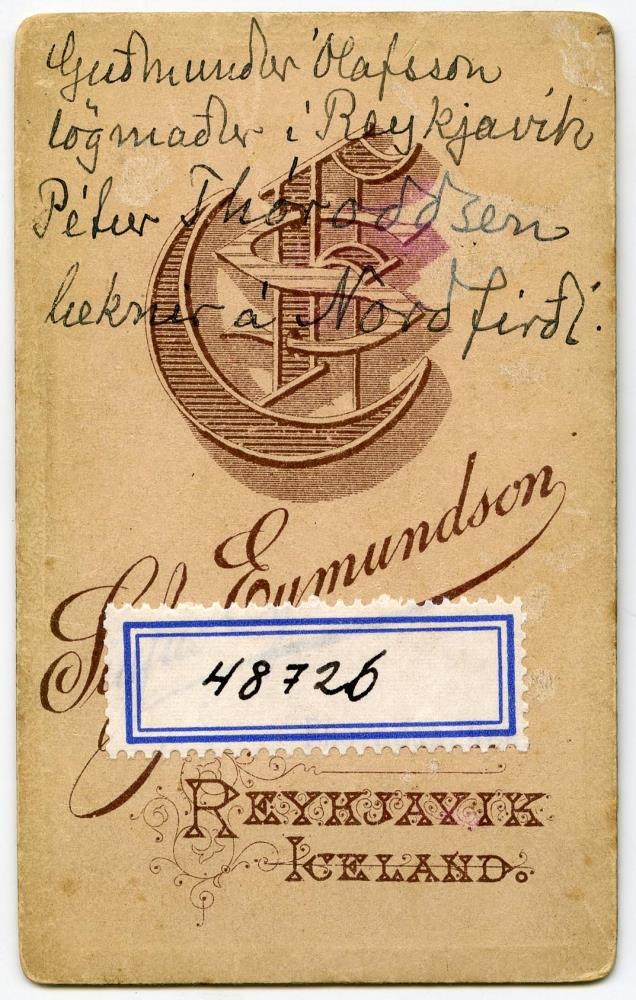 Guðmundur Ólafsson
lögmaður í Reykjavík
Pétur Thóroddsen
læknir á Norðfirði.
Eymundson
48726
REYKJAVIK
ICELAND.